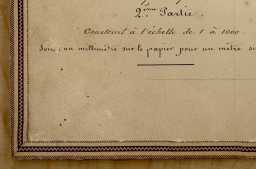 2.ème Partie.
Construit à l'échelle de 1 à 1000
Soit: un millimètre sur le papier pour un mètre su